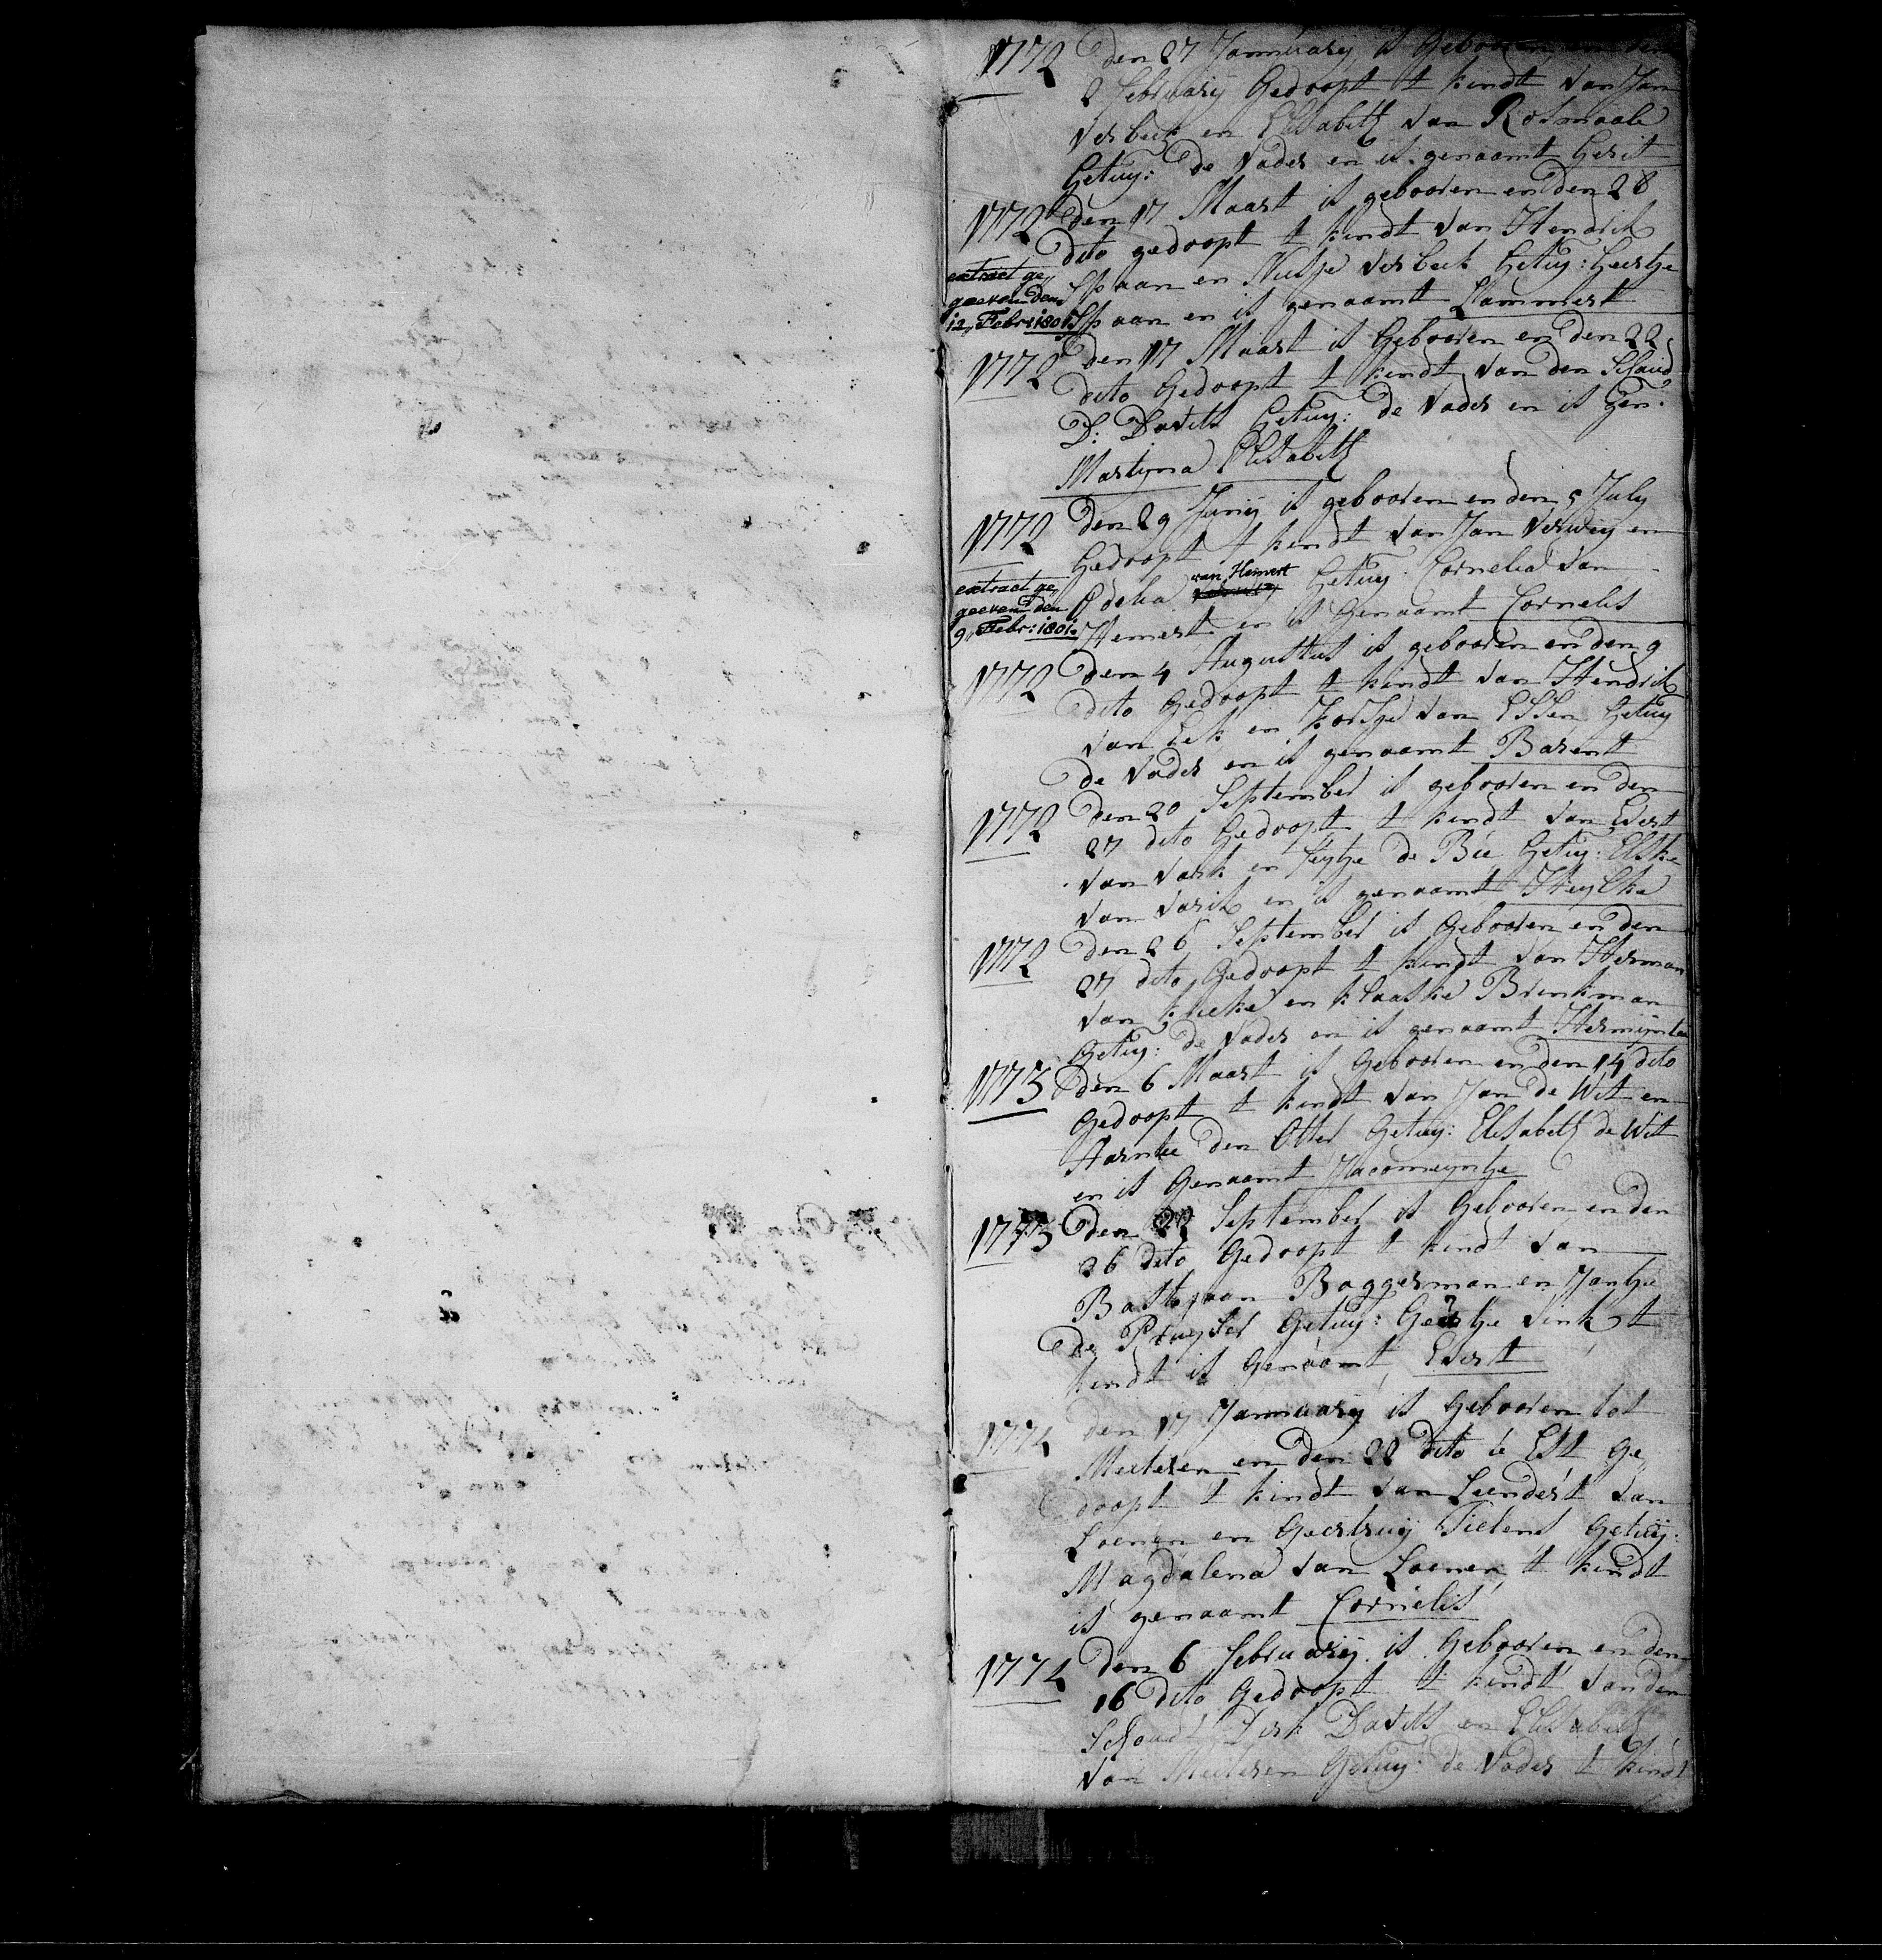 1772 den 27 Januuarij is Gebooren en den
2 februarij Gedoopt t kindt van Jan
Verbeek en Elisabeth van Rosmaale
Getuy: de Vader en is genaamt Gerit
1772 den 17 Maart is gebooren en den 28
dito gedoopt t kindt van Hendrik
Spaan en Neesje Verbeek Getuy: Geertje
Spaan en is genaamt Lammert
extract ge„
geeven den
12, Febr: 1801.
1772 den 17 Maart is Gebooren en den 22
dito Gedoopt t kindt van den Schout
D: Davids Getuy: de Vader en is gen:
Martijna Elisabeth
1772 den 29 Junij is gebooren en den 5 July
Gedoopt t kindt van Jan Verweij en
Odelia van Hemert Getuy: Cornelia van
Hemert en is Genaamt Cornelis
extract ge„
geeven den
9, Febr: 1801.
1772 den 4 Augustus is gebooren en den 9
dito Gedoopt t kindt van Hendrik
van Eek en van Essen Getuy
de Vader en is genaamt Barent
1772 den 20 September is gebooren en den
27 dito Gedoopt t kindt van Evert
van Vark en de Bie Getuy: Elske
van Varik en is genaamt
1772 den 26 September is Gebooren en den
27 dito Gedoopt t kindt van Herman
van en Klaaske Brinkman
Getuy: de Vader en is genaamt Hermijntie
1773 den 6 Maart is Gebooren en den 14 dito
Gedoopt t kindt van Jan de Wit en
Aarntie den Otter Getuy: Elisabeth de Wit
en is Genaamt Jacomeyntje
1773 den 22 September is Gebooren en den
26 dito Gedoopt t kindt van
Bastijaan Baggerman en Jantje
de Pruyser Getuy: Geertje Vink t
kindt is Genaamt Evert
1774 den 17 Januuarij is Gebooren tot
Meeteren en den 22 dito te Est ge„
doopt t kindt van Leendert van
Loenen en Geertruy Tielens Getuy:
Magdalena van Loenen t kindt
is genaamt Cornelis
1774 den 6 februarij is Gebooren en den
16 dito Gedoopt t kindt van den
Schout Dirk Davids en Elisabeth
van Meeteren Getuy: de Vader t kindt